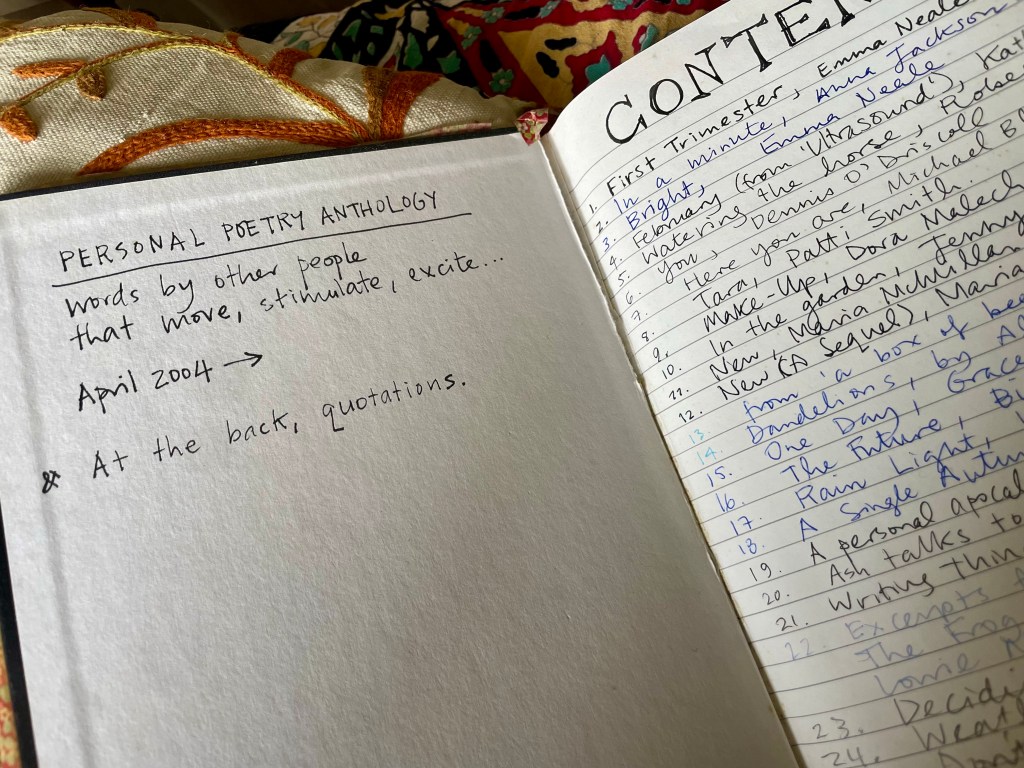 PERSONAL POETRY ANTHOLOGY
words by other people
that move, stimulate, excite...
April 2004 →
& At the back, quotations.
CONTEN
1. First Trimester, Emma Neale
2. In a minute, Anna Jackson
3. Bright, Emma Neale
4. February (from 'Ultrasound'), Kat
5. Watering the horse, Robe
6. You, Dennis O'Driscoll
7. Here you are, Michael B
8. Tara, Patti Smith.
9. Make-Up, Dora Malech
10. In the garden, Jenny
11. New, Maria McMillan
12. New (A Sequel), Maria
13 from 'a box of bee
14. Dandelions, by Al
15. One Day, Grace
16. The Future, Bi
17. Rain Light,
18. A Single Autum
19. A personal apocal
20. Ash talks to
21. Writing thin
22. Excerpts
The Frog
Lorrie
23. Decidi
24. Weat